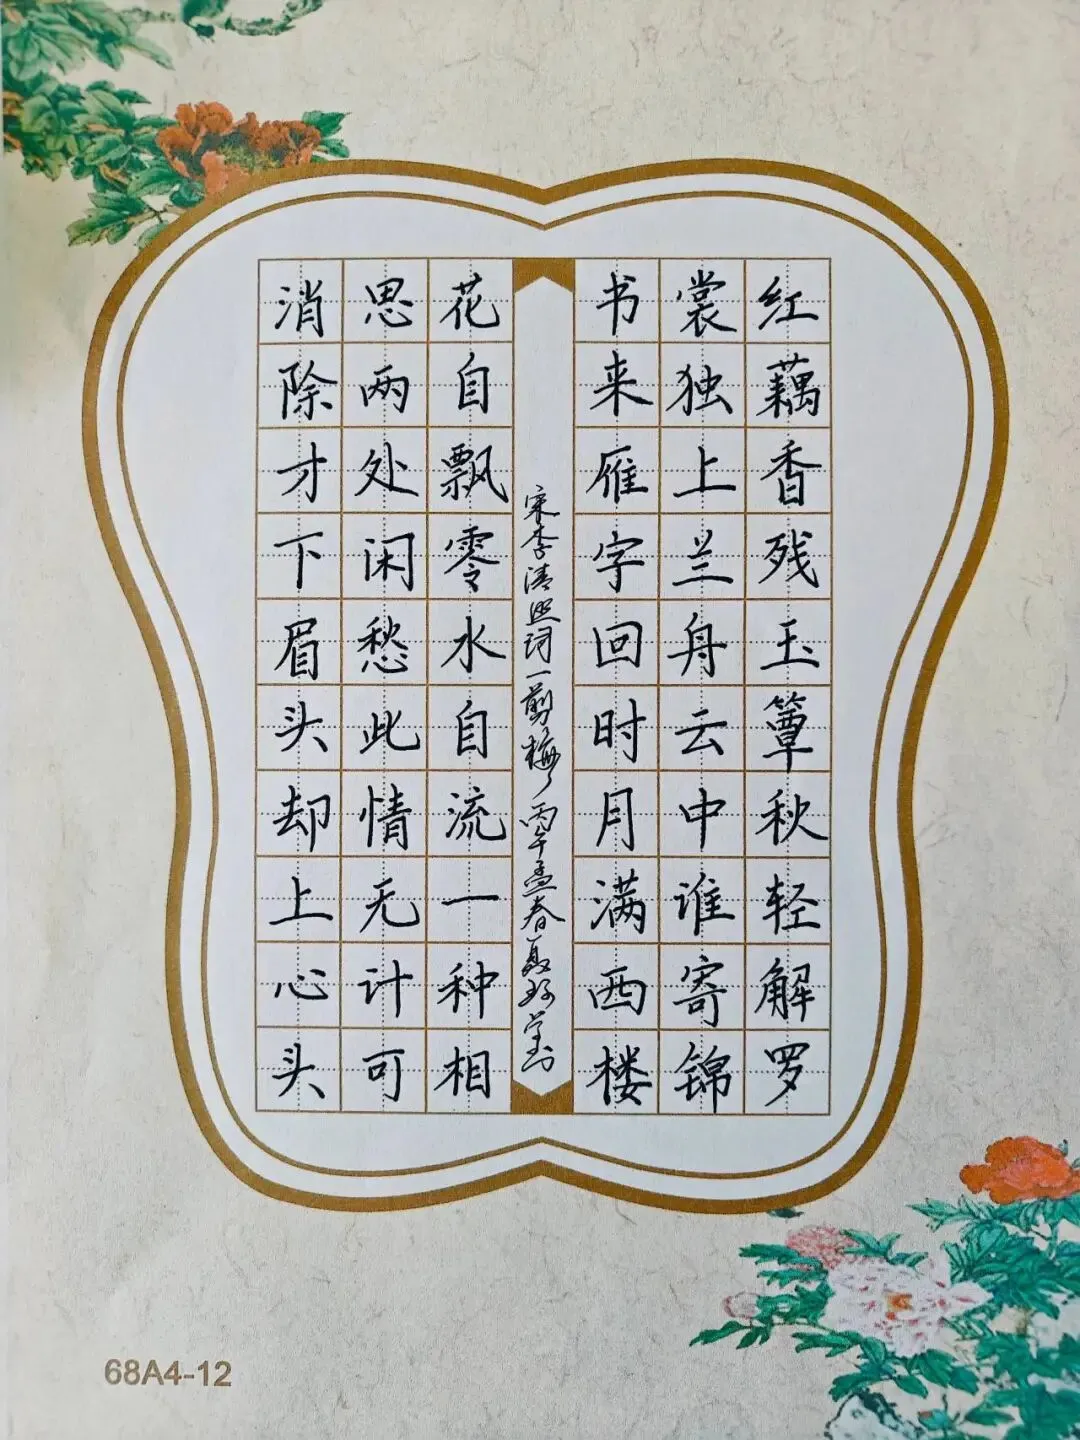 红藕香残玉簟秋轻解罗
裳独上兰舟云中谁寄锦
书来雁字回时月满西楼
宋李清照词一剪梅丙午孟春
花自飘零水自流一种相
思两处闲愁此情无计可
消除才下眉头却上心头
68A4-12